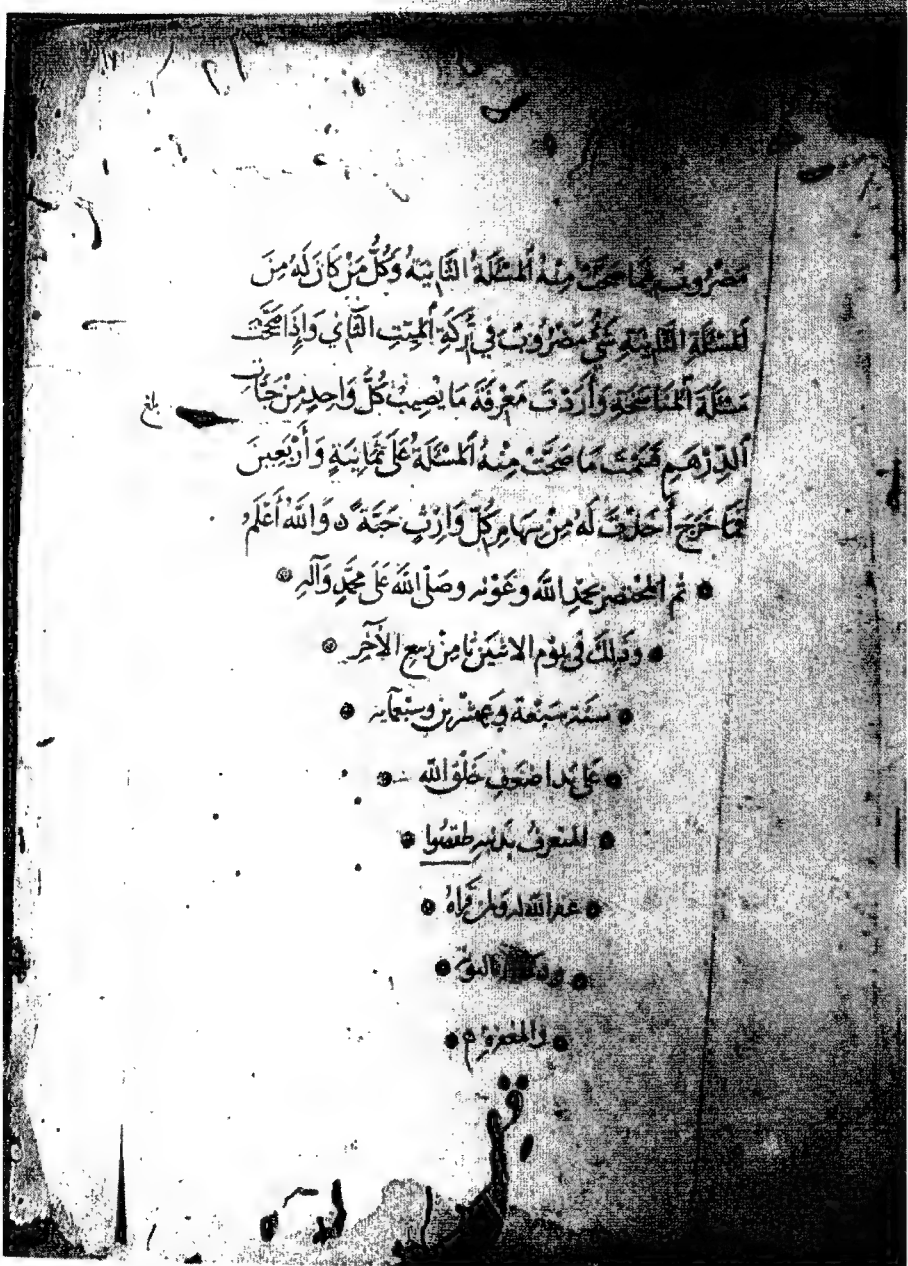 مَضْرُوبٌ فيمَا صَحَّتْ مِنْهُ اَلمسْئَلَةُ الثَّانِيَةُ وَكُلُّ مَنْ كَانَ لَهُ مِنَ
اَلمسْئَلَةِ الثَّانِيَةِ شَيْءٌ مَضْرُوبٌ في تَرِكَةِ اَلميِّتِ الثَّانِي وَإِذَا صَحَّتْ
مَسْئَلَةُ اَلمُنَاسَخَةِ وَأَرَدْتَ مَعْرِفَةَ مَا يُصِيبُ كُلَّ وَاحِدٍ مِنْ حَبَّاتِ
بلغ
اَلدِّرْهَمِ قَسَمْتَ مَا صَحَّتْ مِنْهُ اَلمسْئَلَةُ عَلَى ثَمَانِيَةٍ وَأَرْبَعِينَ
فَمَا خَرَجَ أَخَذْتَ لَهُ مِنْ سِهَامِ كُلِّ وَارِثٍ حَبَّةً وَاللهُ أَعْلَمُ
تم المختصر بحمدِ اللهِ وعَوْنه وصَلَّى الله عَلَى محمَّدٍ وَآلهِ
وذلكَ في يوْم الاثنين ثامن ربيع الآخر
سنة سَبْعة وعشرين وسبعمايه
عَلى يد اضعفِ خَلْق الله
المتعرف
غفر الله له ولمن قراهُ